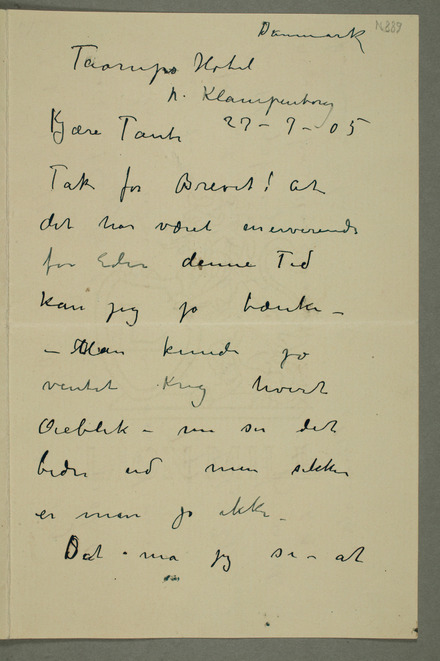 N 889
Danmark
Taarnpæ Hotel
p. Klampenborg
Kjære Tante 27 – 9 – 05
Tak for Brevet! At
det har været enerverende
for Eder denne Tid
kan jeg jo tænke –
– Man kunde jo
ventet Krig hvert
Øieblik – nu ser det
bedre ud men sikker
er man jo ikke –
Det må jeg si – at